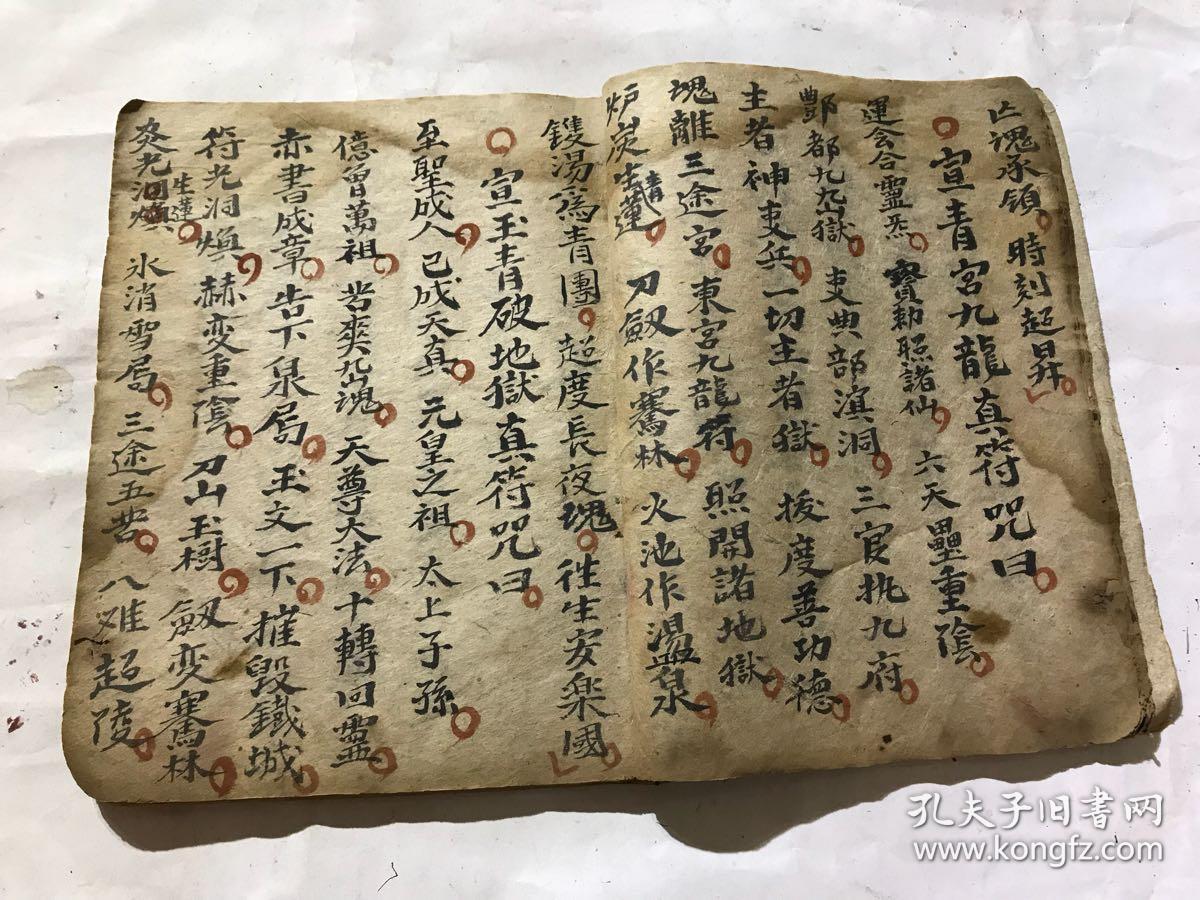 亡魂承領 時刻超昇
宣青宮九龍真符咒曰
運会合靈炁 寳勅照諸仙 六天疊重陰
酆都九幽獄 吏典部滇洞 三官执九府
主者神吏兵 一切主者獄 拔度善功德
魂離三途宮 東宮九龍符 照開諸地獄
炉炭生青蓮 刀劔作騫林 火池作温泉
鑊湯爲青團 超度長夜魂 徃生安楽國
宣玉青破地獄真符咒曰
至聖成人 已成天真 元皇之祖 太上子孫
億曾萬祖 苦爽幽魂 天尊大法 十轉回靈
赤書成章 告下泉局 玉文一下 摧毀鐵城
符光洞煥 赫变重陰 刀山玉樹 劔变騫林
炎光生蓮 氷消雪局 三途五苦 八难超陵
孔夫子旧書网
www.kongfz.com